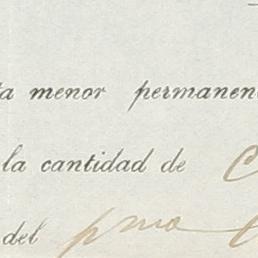 ta menor permanen
la cantidad de
del pmo